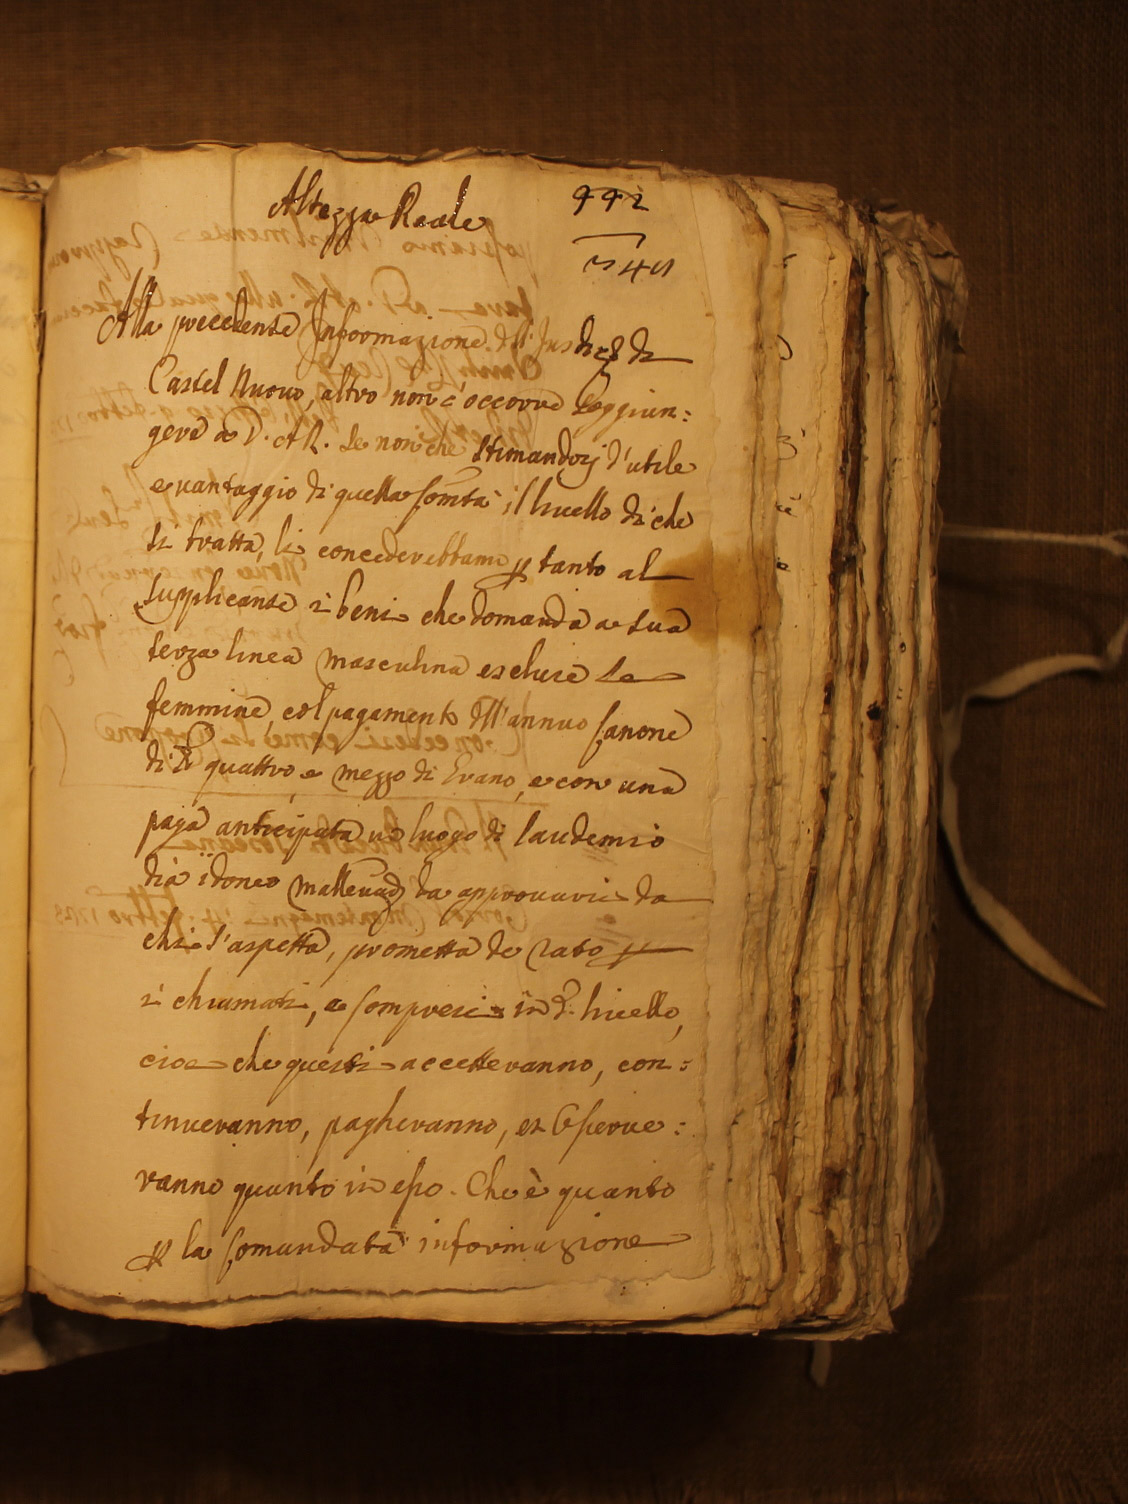 Altezza Reale
442
Alla precedente Informazione dll' Jusd: di
Castel Nuovo, altro non c'occorre soggiun:
gere a V. A R. se non che stimandosi d'utile
e vantaggio di quella Comtà il livello di che
si tratta, li concederebbamo p tanto al
supplicante i beni che domanda a sua
terza linea masculina escluse le
femmine, col pagamento dll' annuo Canone
di quattro, e mezzo di Grano, e con una
paga anticipata in luogo di laudemio
dia idoneo Mallevad da approvarsi da
chi s'aspetta, prometta de rato p
i chiamati, e Compresi in d: livello,
cioè che questi accetteranno, con:
tinueranno, pagheranno, et Osserve:
ranno quanto in esso. Che è quanto
p la Comandata informazione